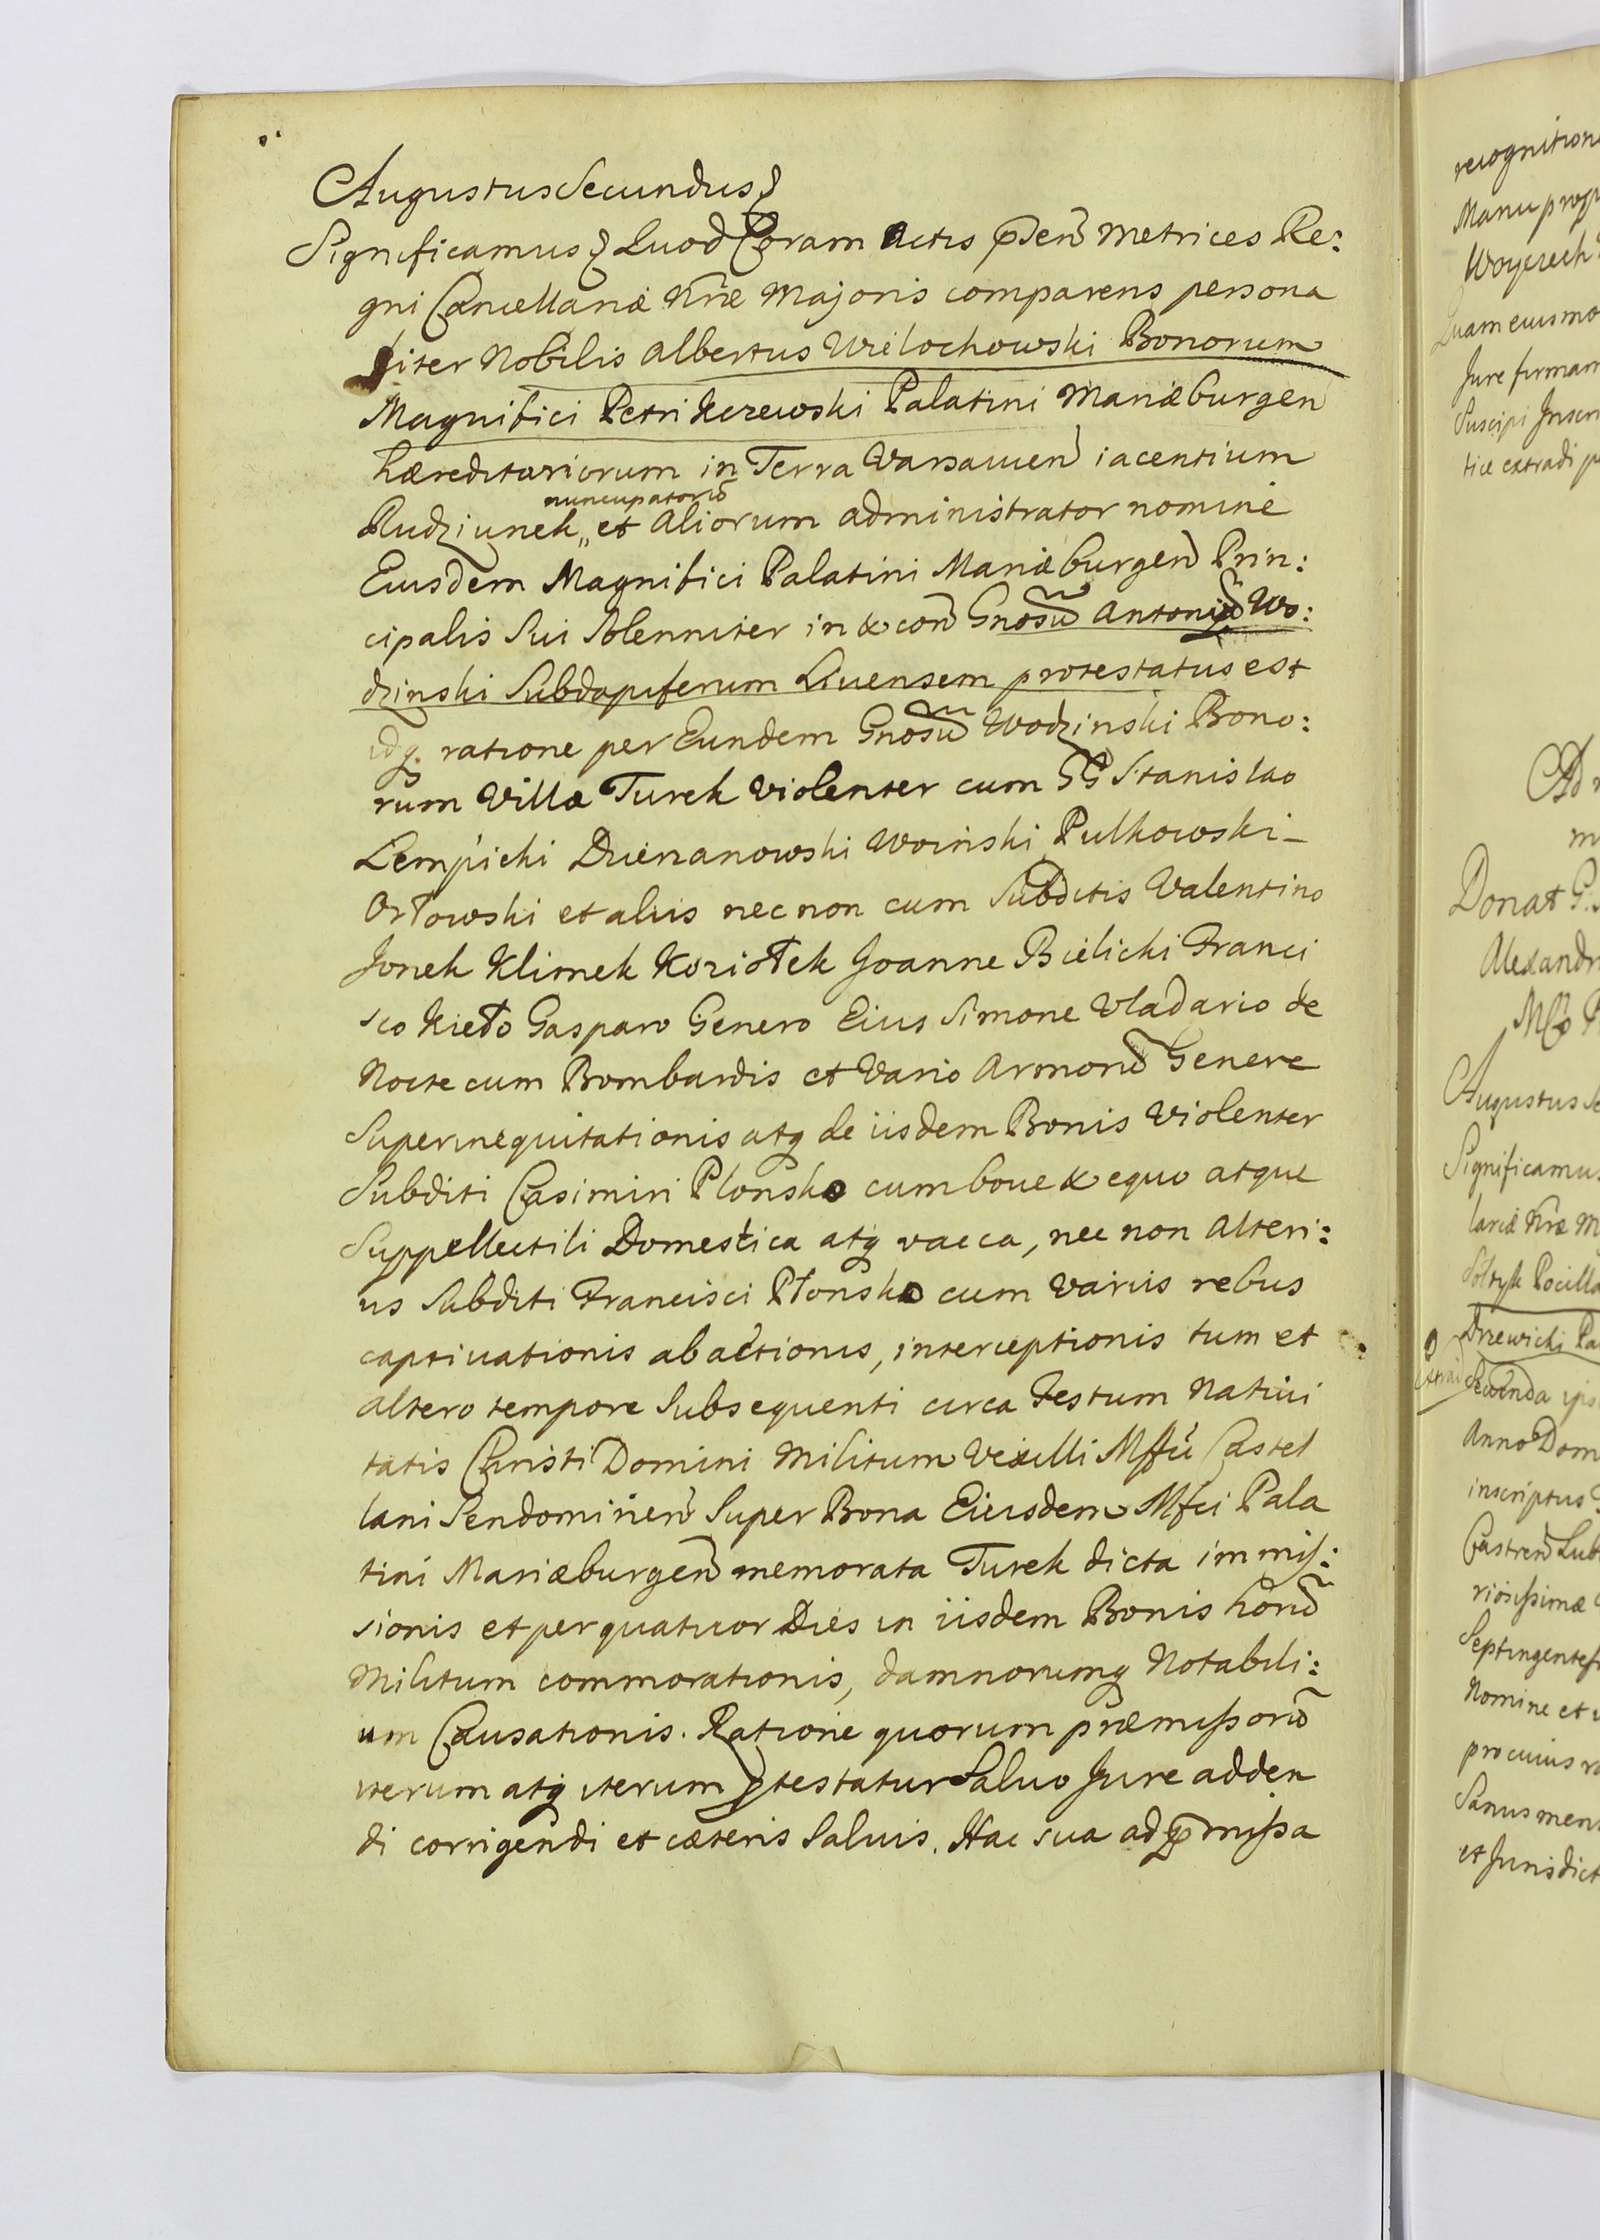 Augustus Secundus
Significamus Quod Coram Actis p̃sen̄ Metrices Re:
gni Cancellariæ Nr̃æ Majoris comparens persona
liter Nobilis Albertus Wielochowski Bonorum
Magnifici Petri Kczewski Palatini Mariæburgen̄
hæreditariorum in Terra Varsauien̄ iacentium
nuncupatorũ
Rudziunek„ et Aliorum administrator nomine
Eiusdem Magnifici Palatini Mariæburgen̄ Prin:
cipalis Sui Solenniter in & con̄ Gnosũ Antoniũ Wo:
dzinski Subdapiferum Liuensem protestatus est
idq; ratione per Eundem Gnosũ Wodzinski Bono:
rum Villæ Turek violenter cum GG Stanislao
Lempicki Dzierzanowski Woinski Pulkowski
Orłowski et aliis nec non cum Subditis Valentino
Jonek Klimek Koziołek Joanne Bielicki Franci
sco Kieło Gasparo Genero Eius Simone Vladario de
Nocte cum Bombardis et Vario Armorũ Genere
Superinequitationis atq; de iisdem Bonis Violenter
Subditi Casimiri Plonsko cum boue & equo atque
Suppellectili Domestica atq; vacca, nec non Alteri:
us Subditi Francisci Płonsko cum variis rebus
captiuationis abactionis, interceptionis tum et
altero tempore Subsequenti circa Festum Natiui
tatis Christi Domini Militum Vexilli Mffci Castel
lani Sendomirien̄ Super Bona Eiusdem Mfci Pala
tini Mariæburgen̄ memorata Turek dicta immis:
sionis et per quatuor Dies in iisdem Bonis horũ
Militum commorationis, damnorumq; Notabili:
um Causationis. Ratione quorum præmissorũ
iterum atq; iterum p̱testatur Saluo Jure adden
di corrigendi et cæteris Saluis. Hac sua ad p̃missa
recognitione
Manu prop
Woyciech
Quam eiusmo
Jure firmam
Suscipi Inscri
tice extradi
Donat G.
Alexandr
Augustus Se
Significamus
lariæ Nr̃æ M
Sołtyk Pocilla
Drzewicki Pa
Secunda ips
Anno Dom
inscriptus
Castren̄ Lub
riosissimæ
Septingentes
Nomine et
pro cuius ra
Sanus ment
et Jurisdict